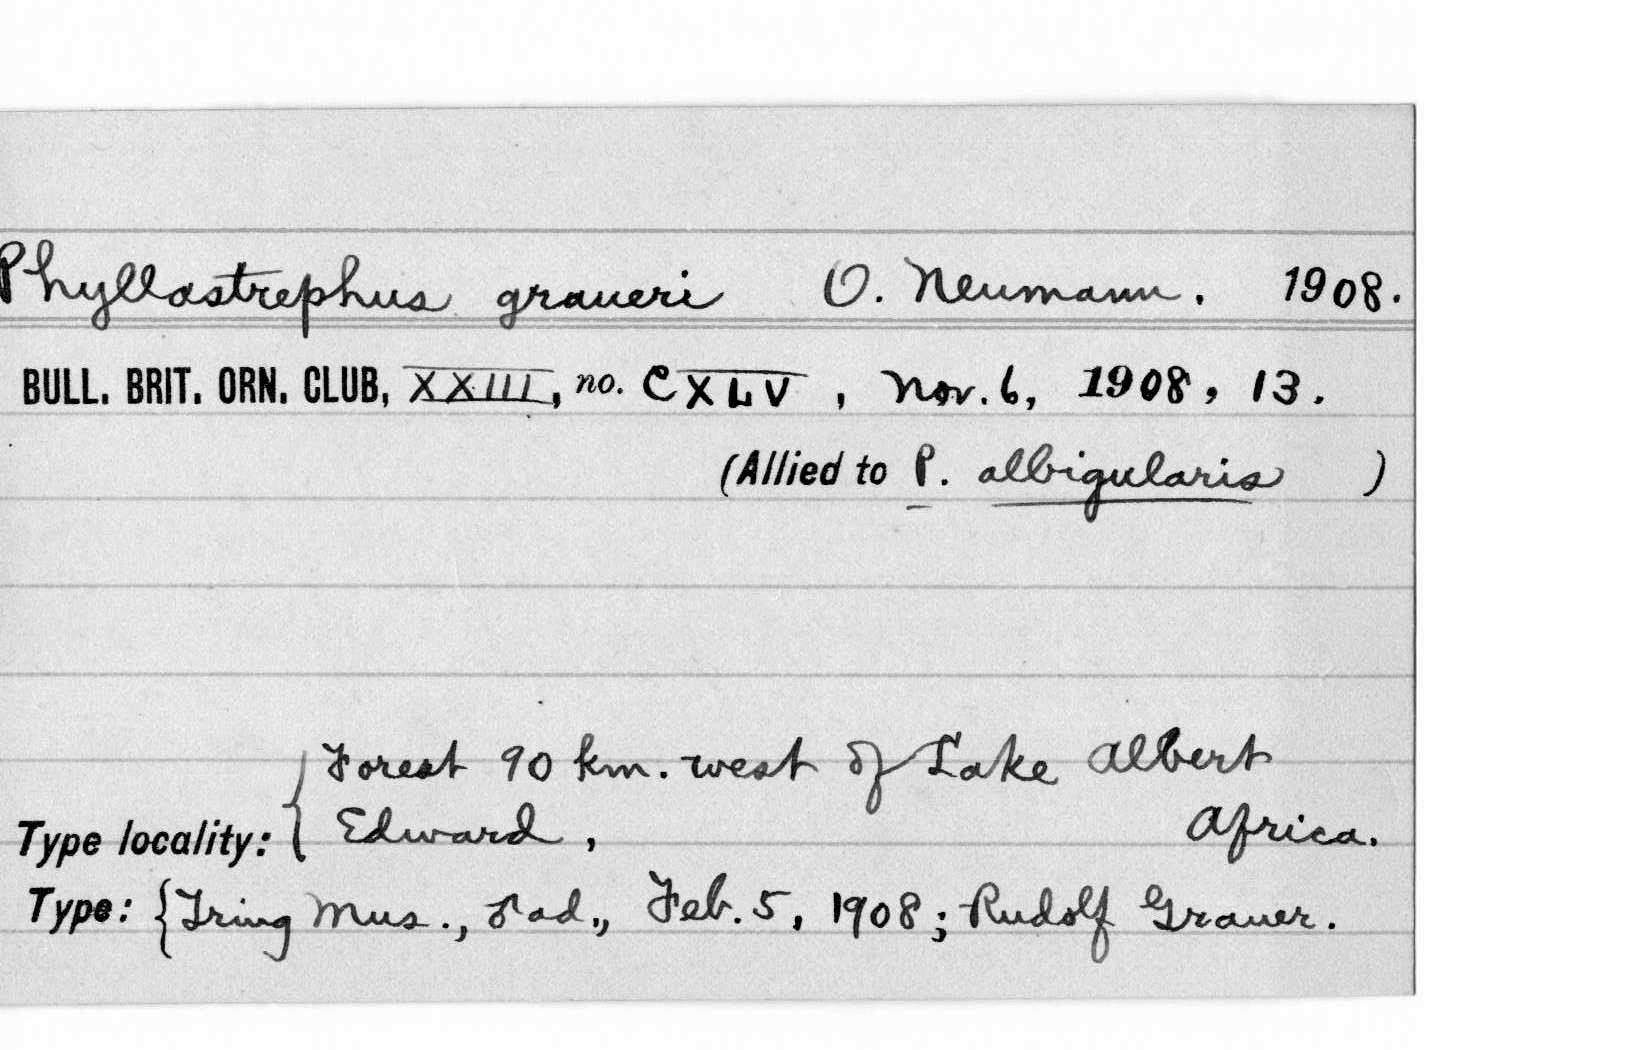 Phyllastrephus graueri O. Neumann. 1908.
BULL. BRIT. ORN. CLUB, XXIII, no. CXLV, Nov. 6, 1908, 13.
(Allied to P. albigularis )
Forest 90 km. west of Lake Albert
Type locality: { Edward, Africa.
Type: {Tring Mus., ♂ ad., Feb. 5, 1908; Rudolf Grauer.